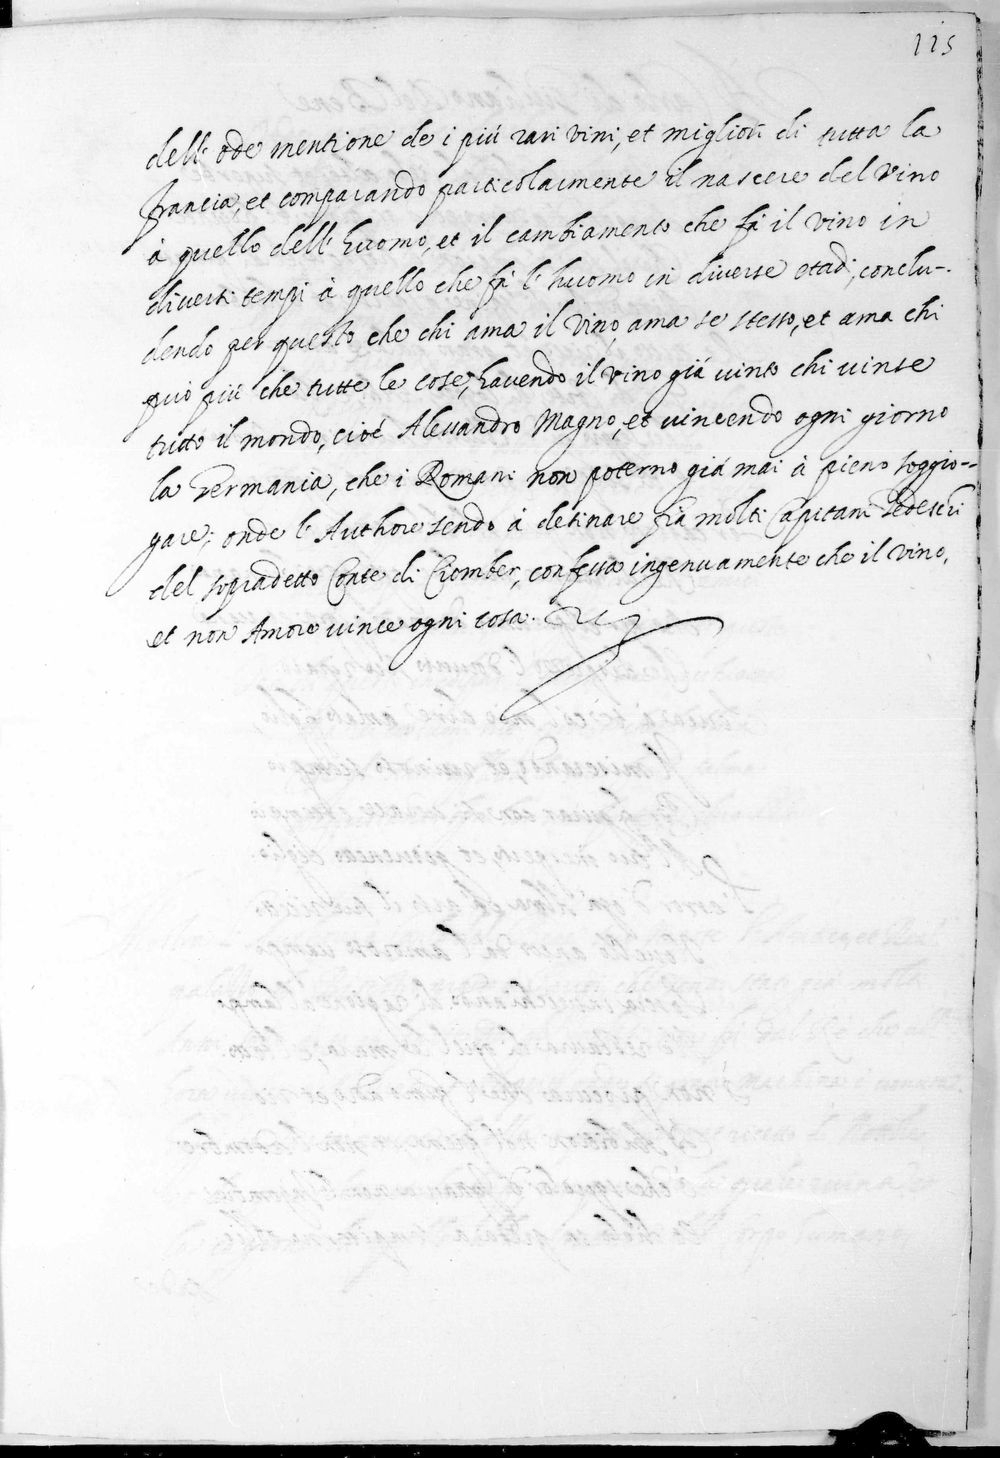 115
dell' ode mentione de i piú rari vini, et migliori di tutta la
francia, et comparando particolarmente il nascere del vino
à quello dell' huomo, et il cambiamento che fà il vino in
diversi tempi à quello che fà l' huomo in diverse etadi, conclu-
dendo per questo che chi ama il vino, ama se stesso, et ama chi
può piú che tutte le cose, havendo il vino giá vinto chi vinse
tutto il mondo, cioé Alessandro Magno, et vincendo ogni giorno
la Germania, che i Romani non poterno giá mai à pieno soggio-
gare; onde l' Authore sendo à desinare frà molti Capitani Tedeschi
del sopradetto Conte di Ciomber, confessa ingenuamente che il vino,
et non Amore vince ogni cosa.